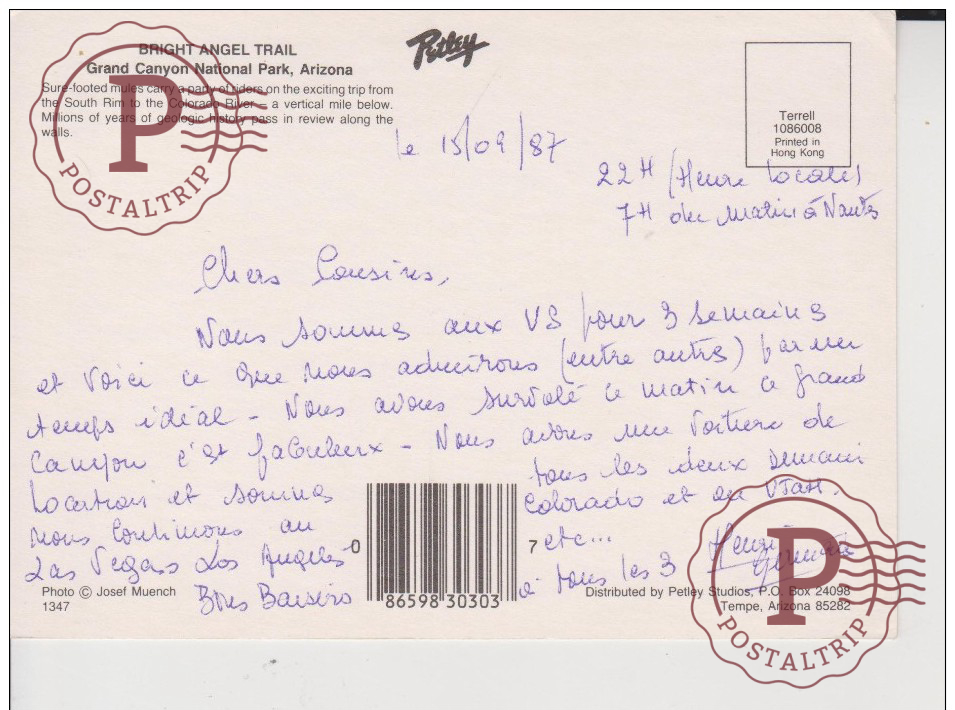 BRIGHT ANGEL TRAIL
Grand Canyon National Park, Arizona
Sure-footed mules carry a party of riders on the exciting trip from
the South Rim to the Colorado River – a vertical mile below.
Millions of years of geologic history pass in review along the
walls.
Petley
Terrell
1086008
Printed in
Hong Kong
POSTALTRIP
le 15/09/87
22H (Heure locale)
7H du matin à Nantes
Chers Cousins,
Nous sommes aux US pour 3 semaines
et voici ce que nous admirons (entre autres) par un
temps idéal - Nous avons survolé ce matin ce grand
Canyon c'est fabuleux - Nous avons une voiture de
location et sommes tous les deux demain
nous continuons au Colorado et en UTAH.
Las Vegas Los Angeles etc...
Bons Baisers à tous les 3
Henri
Germaine
0 86598 30303 7
Photo © Josef Muench
1347
Distributed by Petley Studios, P.O. Box 24098
Tempe, Arizona 85282
POSTALTRIP